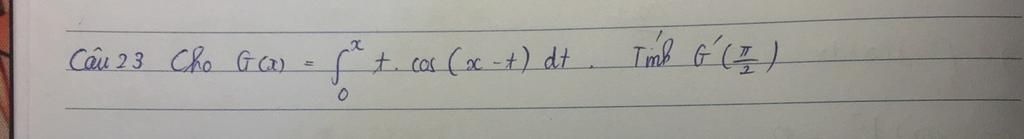 Câu 23 Cho G(x) = ∫₀ˣ t. cos(x-t) dt. Tính G'(π/2)